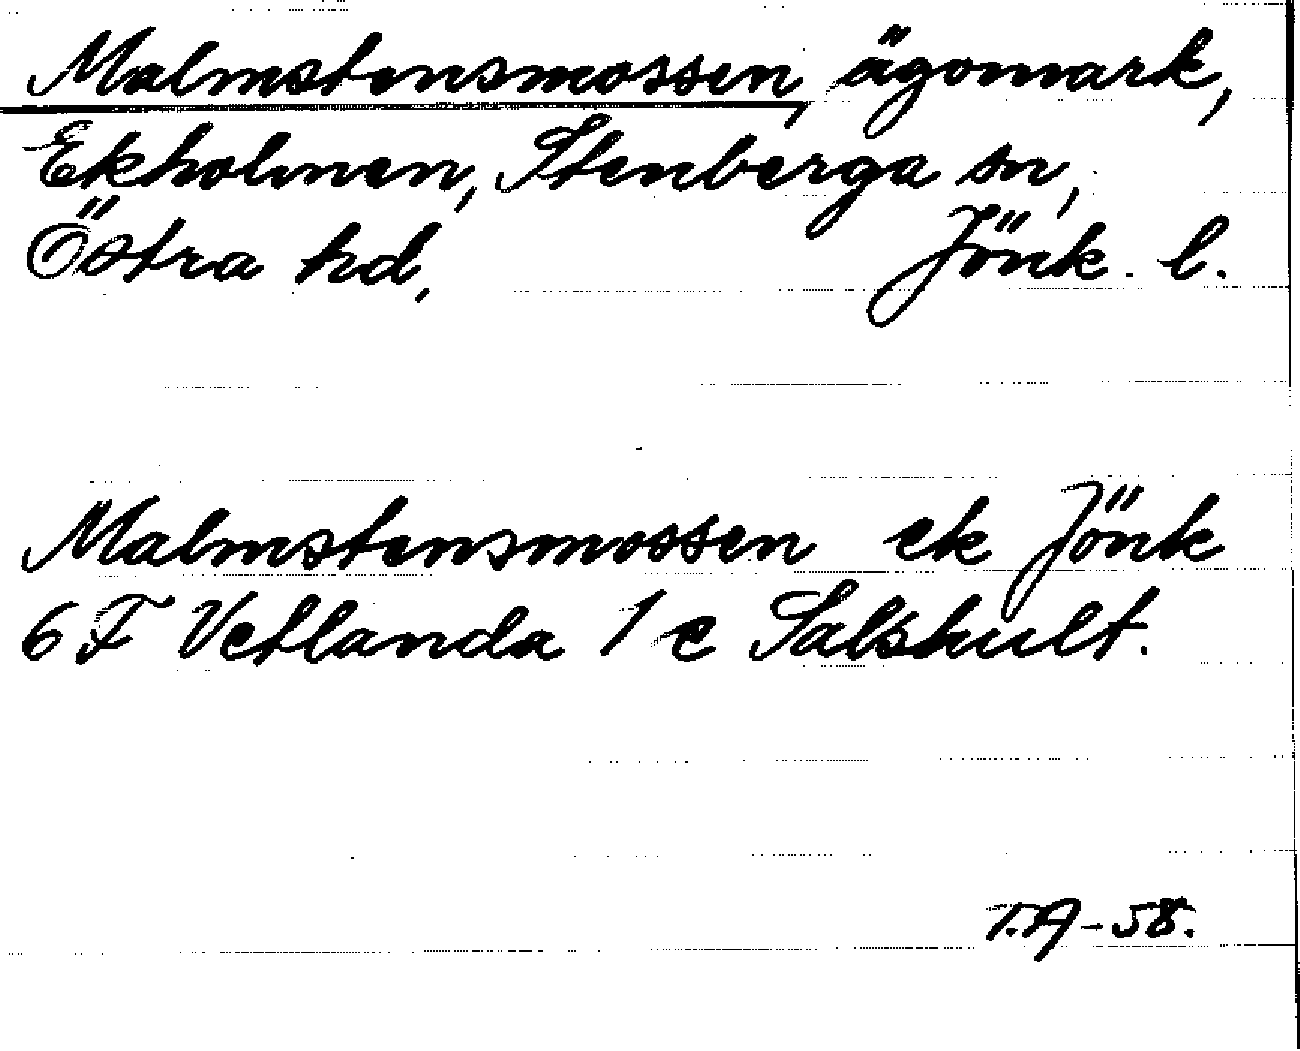 Malmstensmossen, ägomark,
Ekholmen, Stenberga sn,
Östra hd, Jönk. l.
Malmstensmossen ek Jönk
6 F Vetlanda 1 e Salshult.
T.A-58.